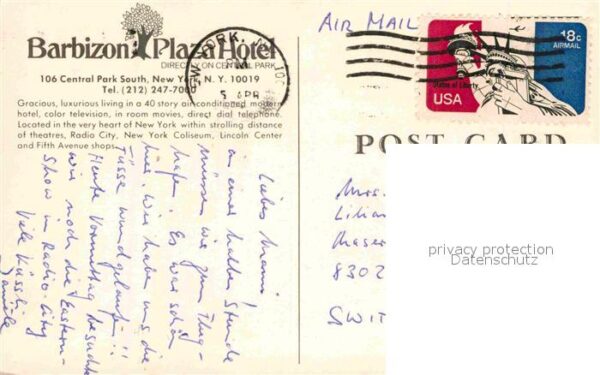 Barbizon Plaza Hotel
DIRECTLY ON CENTRAL PARK
106 Central Park South, New York, N. Y. 10019
Tel. (212) 247-7000
Gracious, luxurious living in a 40 story air conditioned modern
hotel, color television, in room movies, direct dial telephone.
Located in the very heart of New York within strolling distance
of theatres, Radio City, New York Coliseum, Lincoln Center
and Fifth Avenue shops.
Liebes Mami
in einer halben Stunde
müssen wir zum Flug-
hafen. Es war schön
hier. Wir haben uns die
Füsse wund gelaufen!!
Heute Vormittag besuchten
wir noch die Eastern-
Show in Radio-City
Viele Küssli
Daniela
AIR MAIL
18c
AIRMAIL
Statue of Liberty
USA
POST CARD
Mrs.
Lilian
Maser
8302
SWIT
privacy protection
Datenschutz